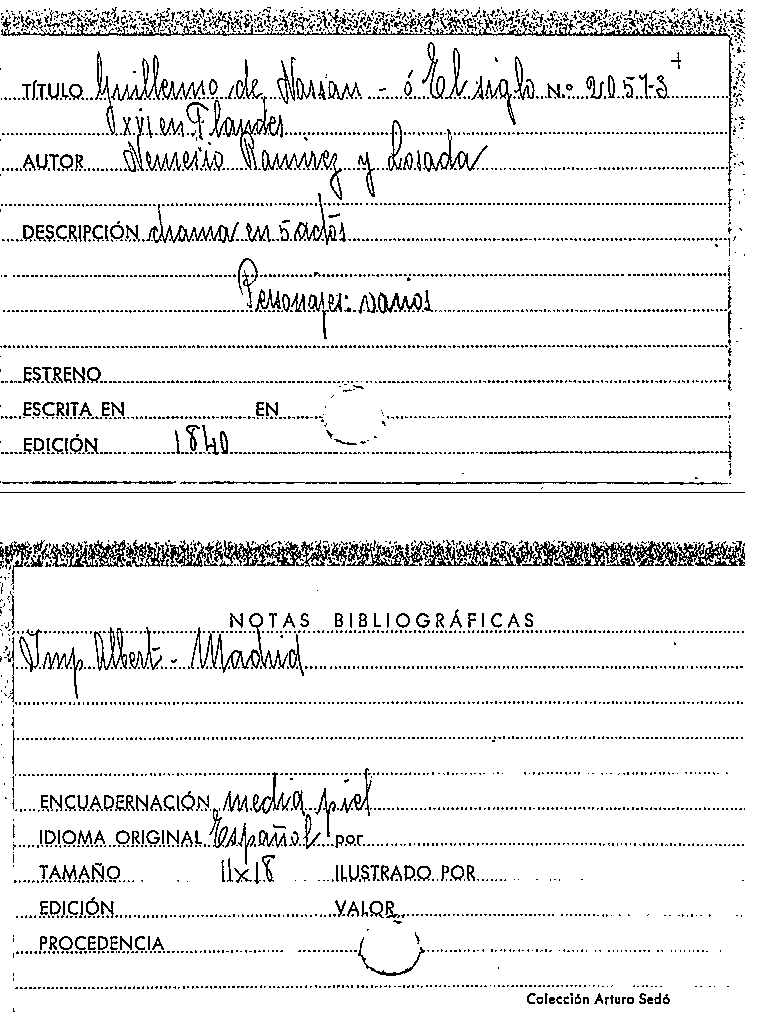 TÍTULO Guillermo de Nassau - ó El siglo N.º 20573
XVI en Flandes
AUTOR Nemesio Ramirez y Losada
DESCRIPCIÓN drama en 5 actos
Personajes: varios
ESTRENO
ESCRITA EN EN
EDICIÓN 1840
NOTAS BIBLIOGRÁFICAS
Imp Albert - Madrid
ENCUADERNACIÓN media piel
IDIOMA ORIGINAL Español por
TAMAÑO 11x18 ILUSTRADO POR
EDICIÓN VALOR
PROCEDENCIA
Colección Arturo Sedó